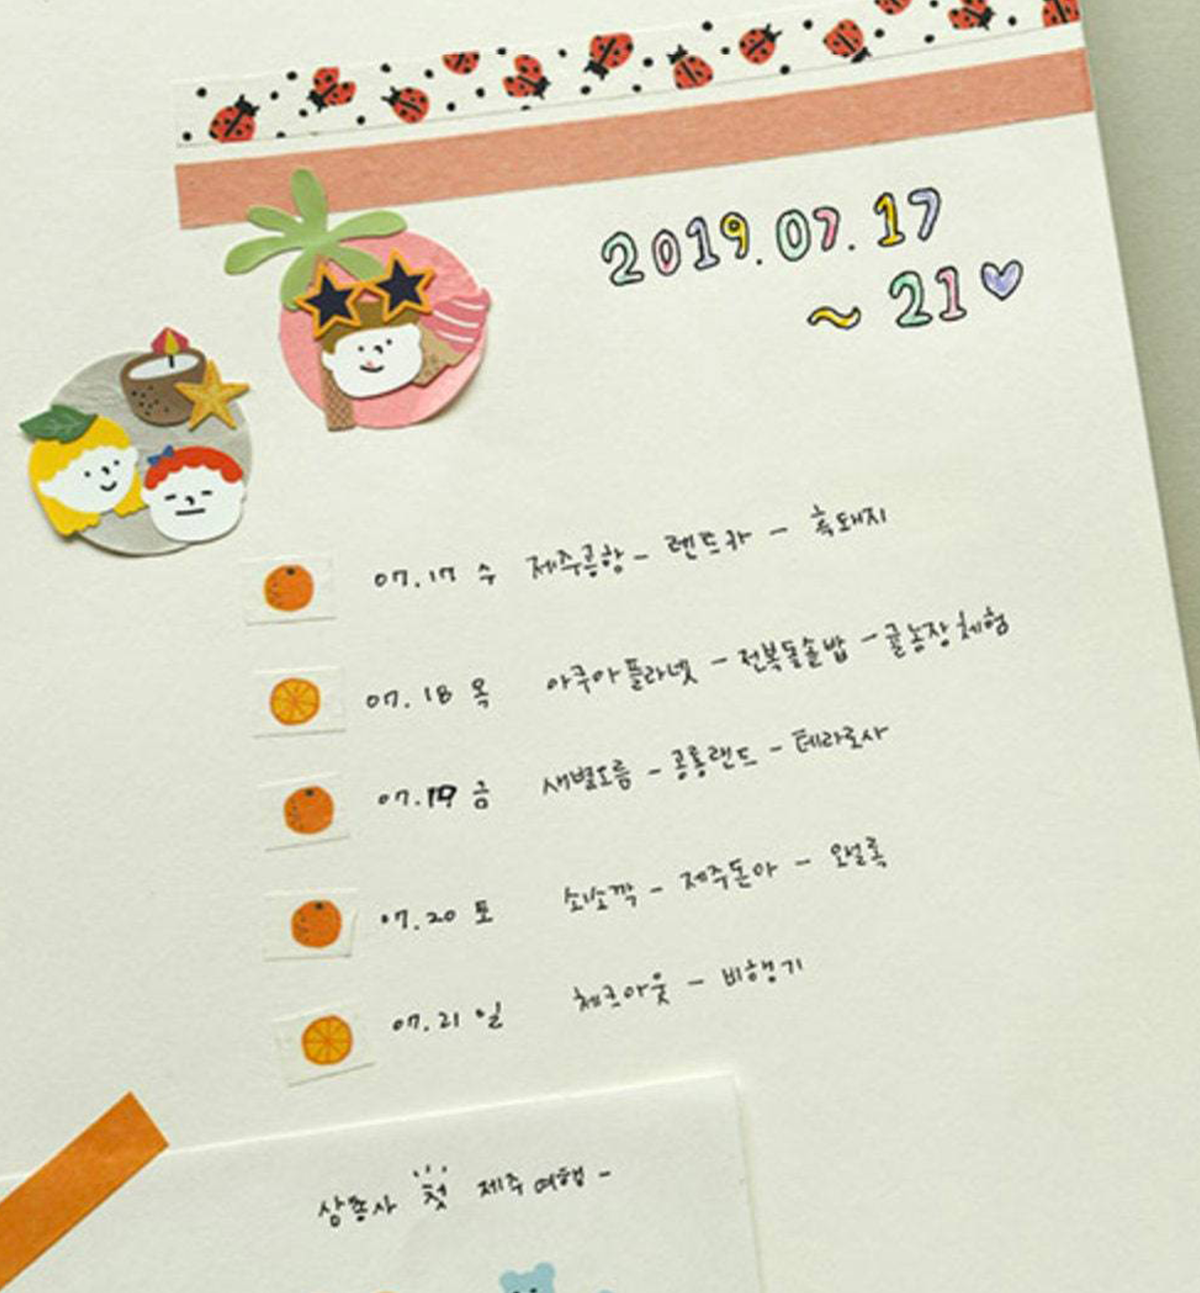 2019.07.17
~ 21♡
07.17 수 제주공항 - 렌트카 - 흑돼지
07.18 목 아쿠아플라넷 - 전복돌솥밥 - 귤농장체험
07.19 금 새별오름 - 공룡랜드 - 테라로사
07.20 토 쇠소깍 - 제주돈아 - 오설록
07.21 일 체크아웃 - 비행기
삼총사 첫 제주 여행 -